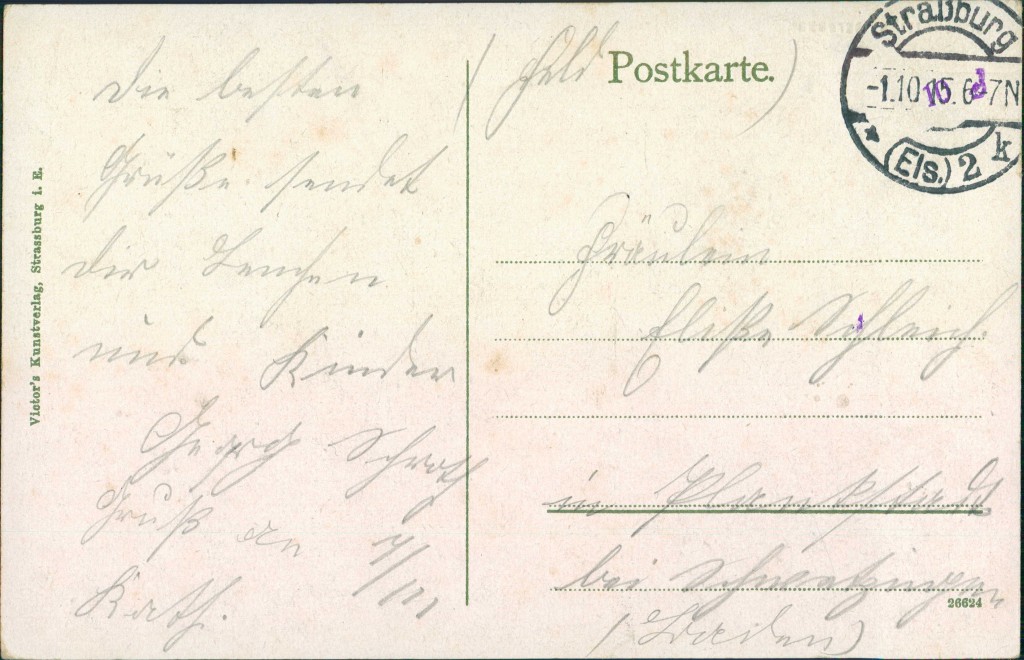 Die besten
Grüße sendet
dir Lenchen
und Kinder
Georg Schroth
Gruß an
Kath.
(Feld Postkarte.)
Straßburg
-1.10.15.6-7N
(Els.) 2 k
Fräulein
Eliße Schleich.
in Plankstadt
bei Schwetzingen
(Baden)
26624
Victor's Kunstverlag, Strassburg i. E.